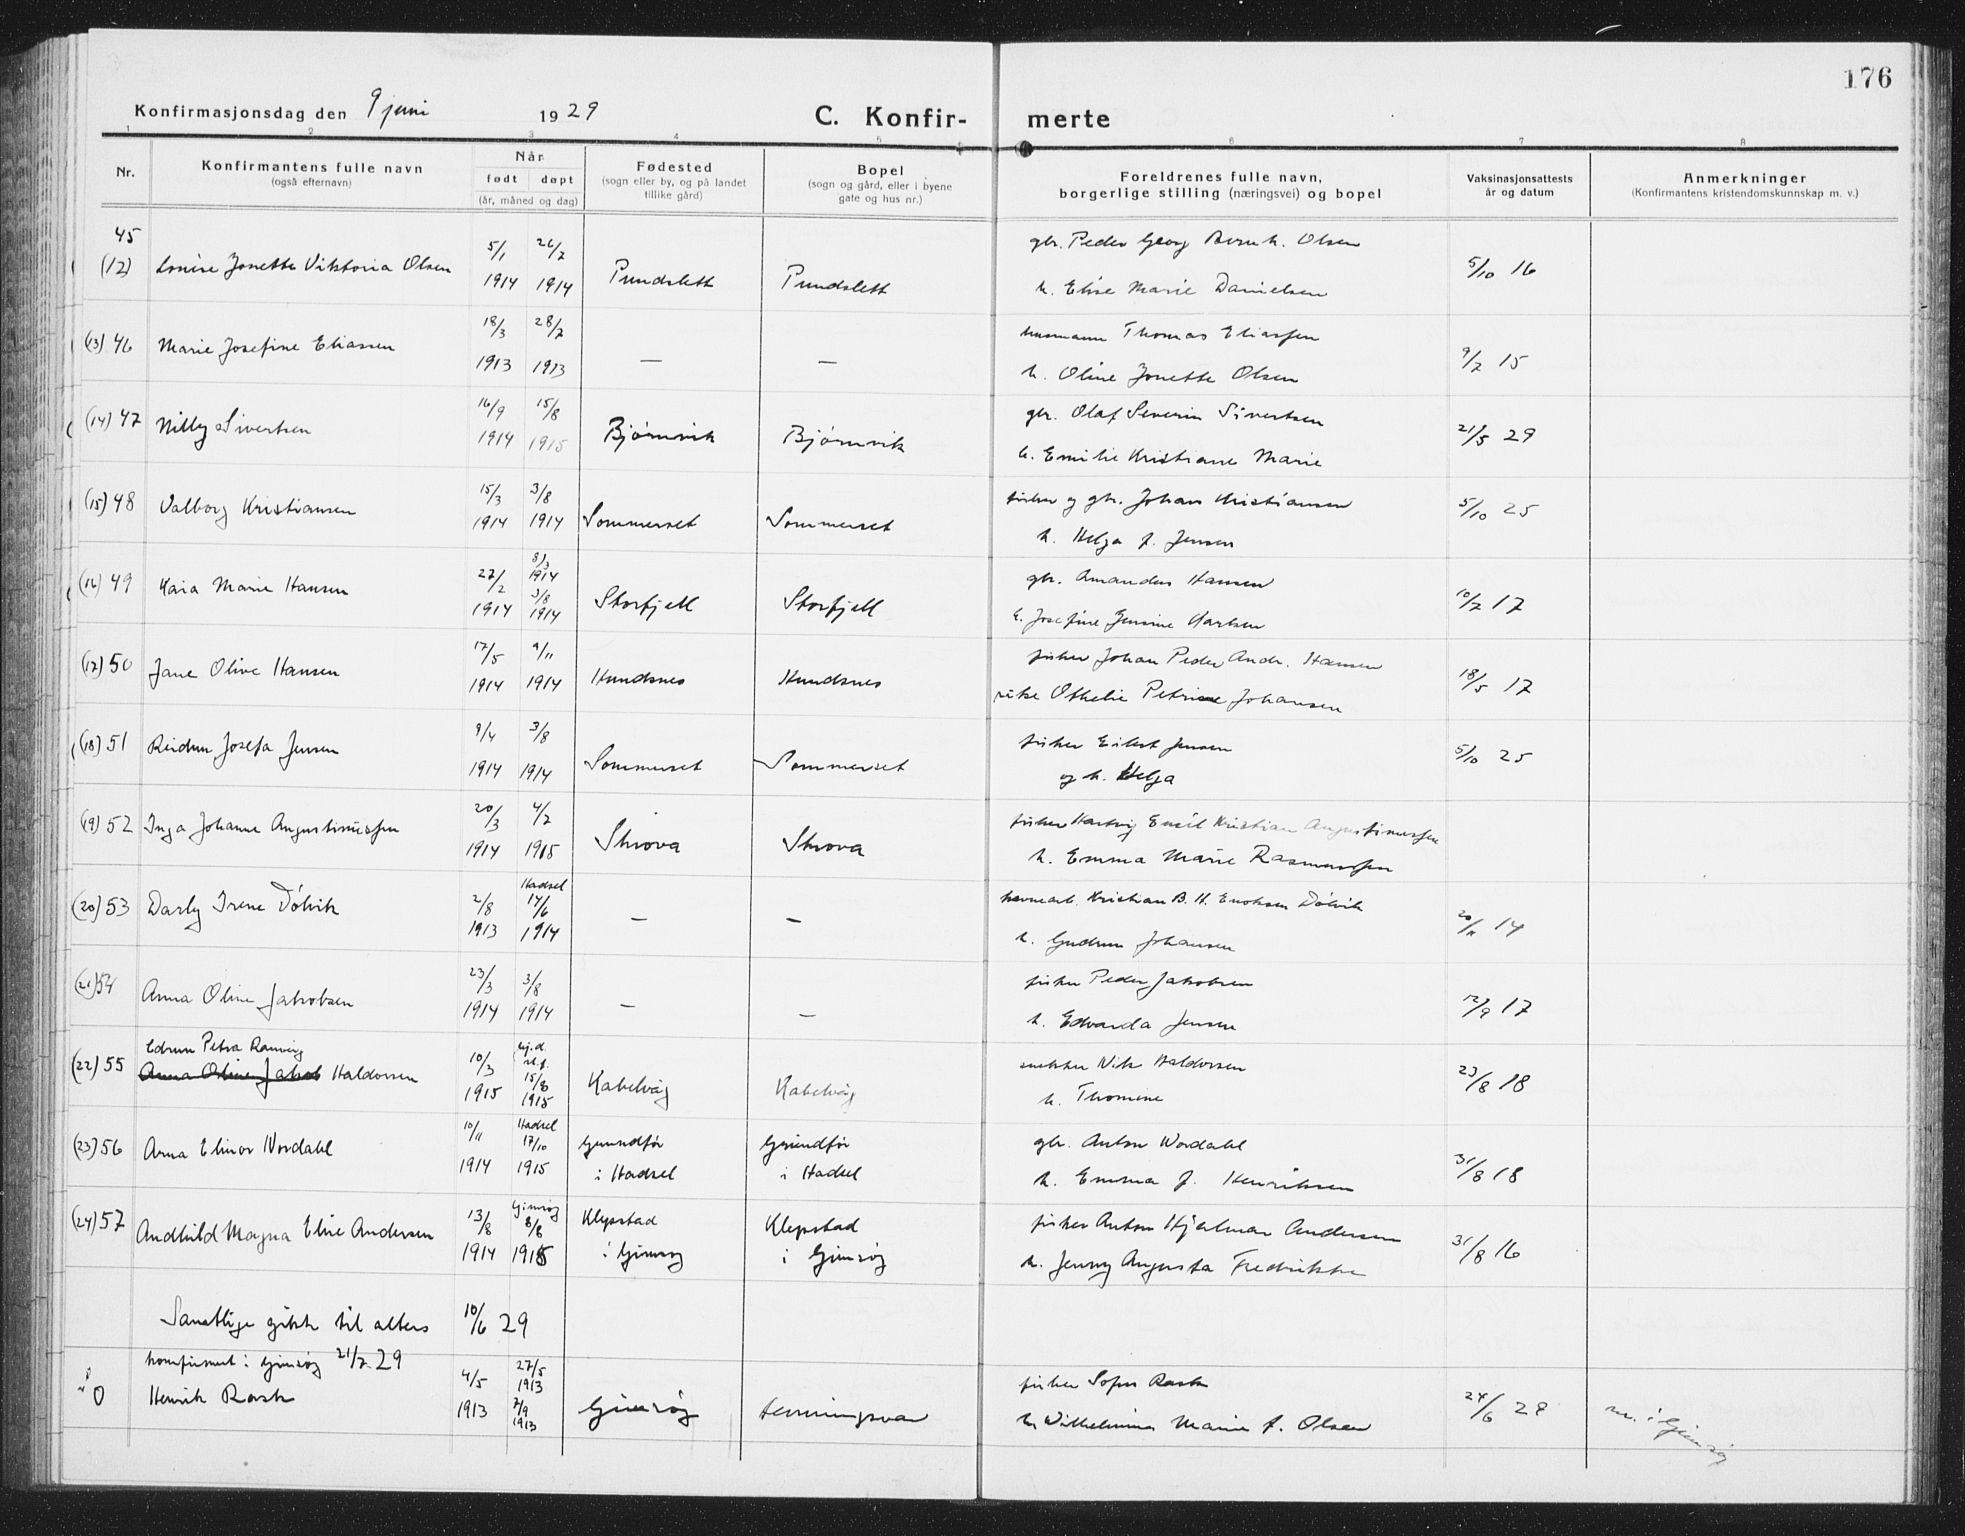 176
Konfirmasjonsdag den 9 juni 1929
C. Konfir- merte
1 2 3 4 5 6 7 8
Nr.
Konfirmantens fulle navn
(også efternavn)
Når
født døpt
(år, måned og dag)
Fødested
(sogn eller by, og på landet
tillike gård)
Bopel
(sogn og gård, eller i byene
gate og hus nr.)
Foreldrenes fulle navn,
borgerlige stilling (næringsvei) og bopel
Vaksinasjonsattests
år og datum
Anmerkninger
(Konfirmantens kristendomskunnskap m. v.)
45 (12) Louise Jonette Viktoria Olsen 5/1 1914 26/7 1914 Pundslett Pundslett
gbr. Peder Georg Bernh. Olsen
h. Elise Marie Danielsen
5/10 16
(13) 46 Marie Josefine Eliassen 18/3 1913 28/7 1913 — —
husmann Thomas Eliassen
h. Oline Jonette Olsen
9/7 15
(14) 47 Nilly Sivertsen 16/9 1914 15/8 1915 Bjørnvik Bjørnvik
gbr. Olaf Severin Sivertsen
h. Emilie Kristiane Marie
21/5 29
(15) 48 Valborg Kristiansen 15/3 1914 3/8 1914 Sommerset Sommerset
fisker og gbr. Johan Kristiansen
h. Helga f. Jensen
5/10 25
(16) 49 Kaia Marie Hansen 27/2 1914 8/3 1914 3/8 1914 Storfjell Storfjell
gbr. Amandus Hansen
h. Josefine Jensine Karlsen
10/7 17
(17) 50 Jane Olive Hansen 17/5 1914 9/11 1914 Hundsnes Hundsnes
fisker Johan Peder Andr. Hansen
Othelie Petrine Johansen
18/5 17
(18) 51 Reidun Josefa Jensen 9/4 1914 3/8 1914 Sommerset Sommerset
fisker Eilert Jensen
og h. Helga
5/10 25
(19) 52 Inga Johanne Augustinussen 20/3 1914 4/7 1915 Skrova Skrova
fisker Hartvig Emil Kristian Augustinussen
h. Emma Marie Rasmussen
(20) 53 Darly Irene Dólvik 2/8 1913 Hadsel 14/6 1914 — —
havnearb. Kristian B. H. Enoksen Dólvik
h. Gudrun Johansen
14
(21) 54 Anna Oline Jakobsen 23/3 1914 3/8 1914 — —
fisker Peder Jakobsen
h. Edvarda Jensen
12/9 17
(22) 55 Petra
Anna Oline Jakob Haldorsen 10/3 1915 hj.d. 15/8 1915 Kabelvåg Kabelvåg
Haldorsen
h. Thomine
23/8 18
(23) 56 Arna Elinor Nordahl 10/11 1914 Hadsel 17/10 1915 Grundfør i Hadsel Grundfør i Hadsel
gbr. Anton Nordahl
h. Emma f. Henriksen
31/8 18
(24) 57 Andhild Magna Elise Andersen 13/8 1914 Gimsøy 8/8 1915 Klepstad i Gimsøy Klepstad i Gimsøy
fisker Anton Hjalmar Andersen
h. Jenny Augusta Fredrikke
31/8 16
Samtlige gikk til alters 10/6 29
konfirmert i Gimsøy 21/7 29
0 Henrik Rask 4/5 1913 27/5 1913 7/9 1913 Gimsøy Henningsvær
fisker Sofus Rask
h. Wilhelmine Marie f. Olsen
24/6 29
i Gimsøy